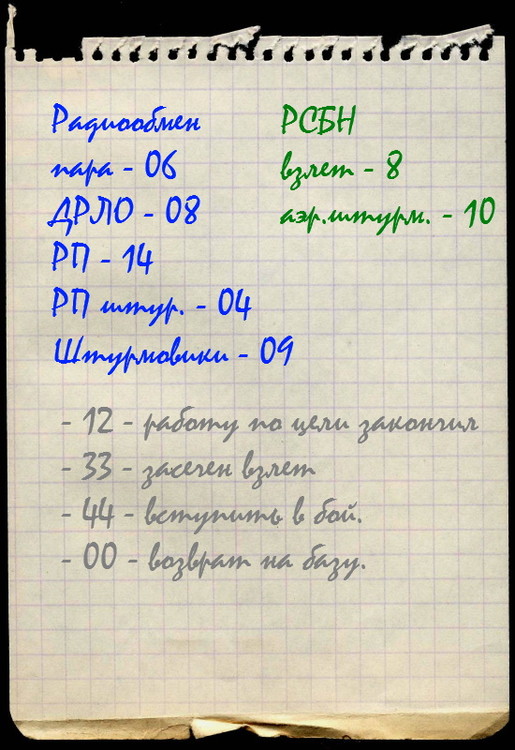 Радиообмен
пара - 06
ДРЛО - 08
РП - 14
РП штур. - 04
Штурмовики - 09
РСБН
взлет - 8
аэр.штурм. - 10
- 12 - работу по цели закончил
- 33 - засечен взлет
- 44 - вступить в бой.
- 00 - возврат на базу.